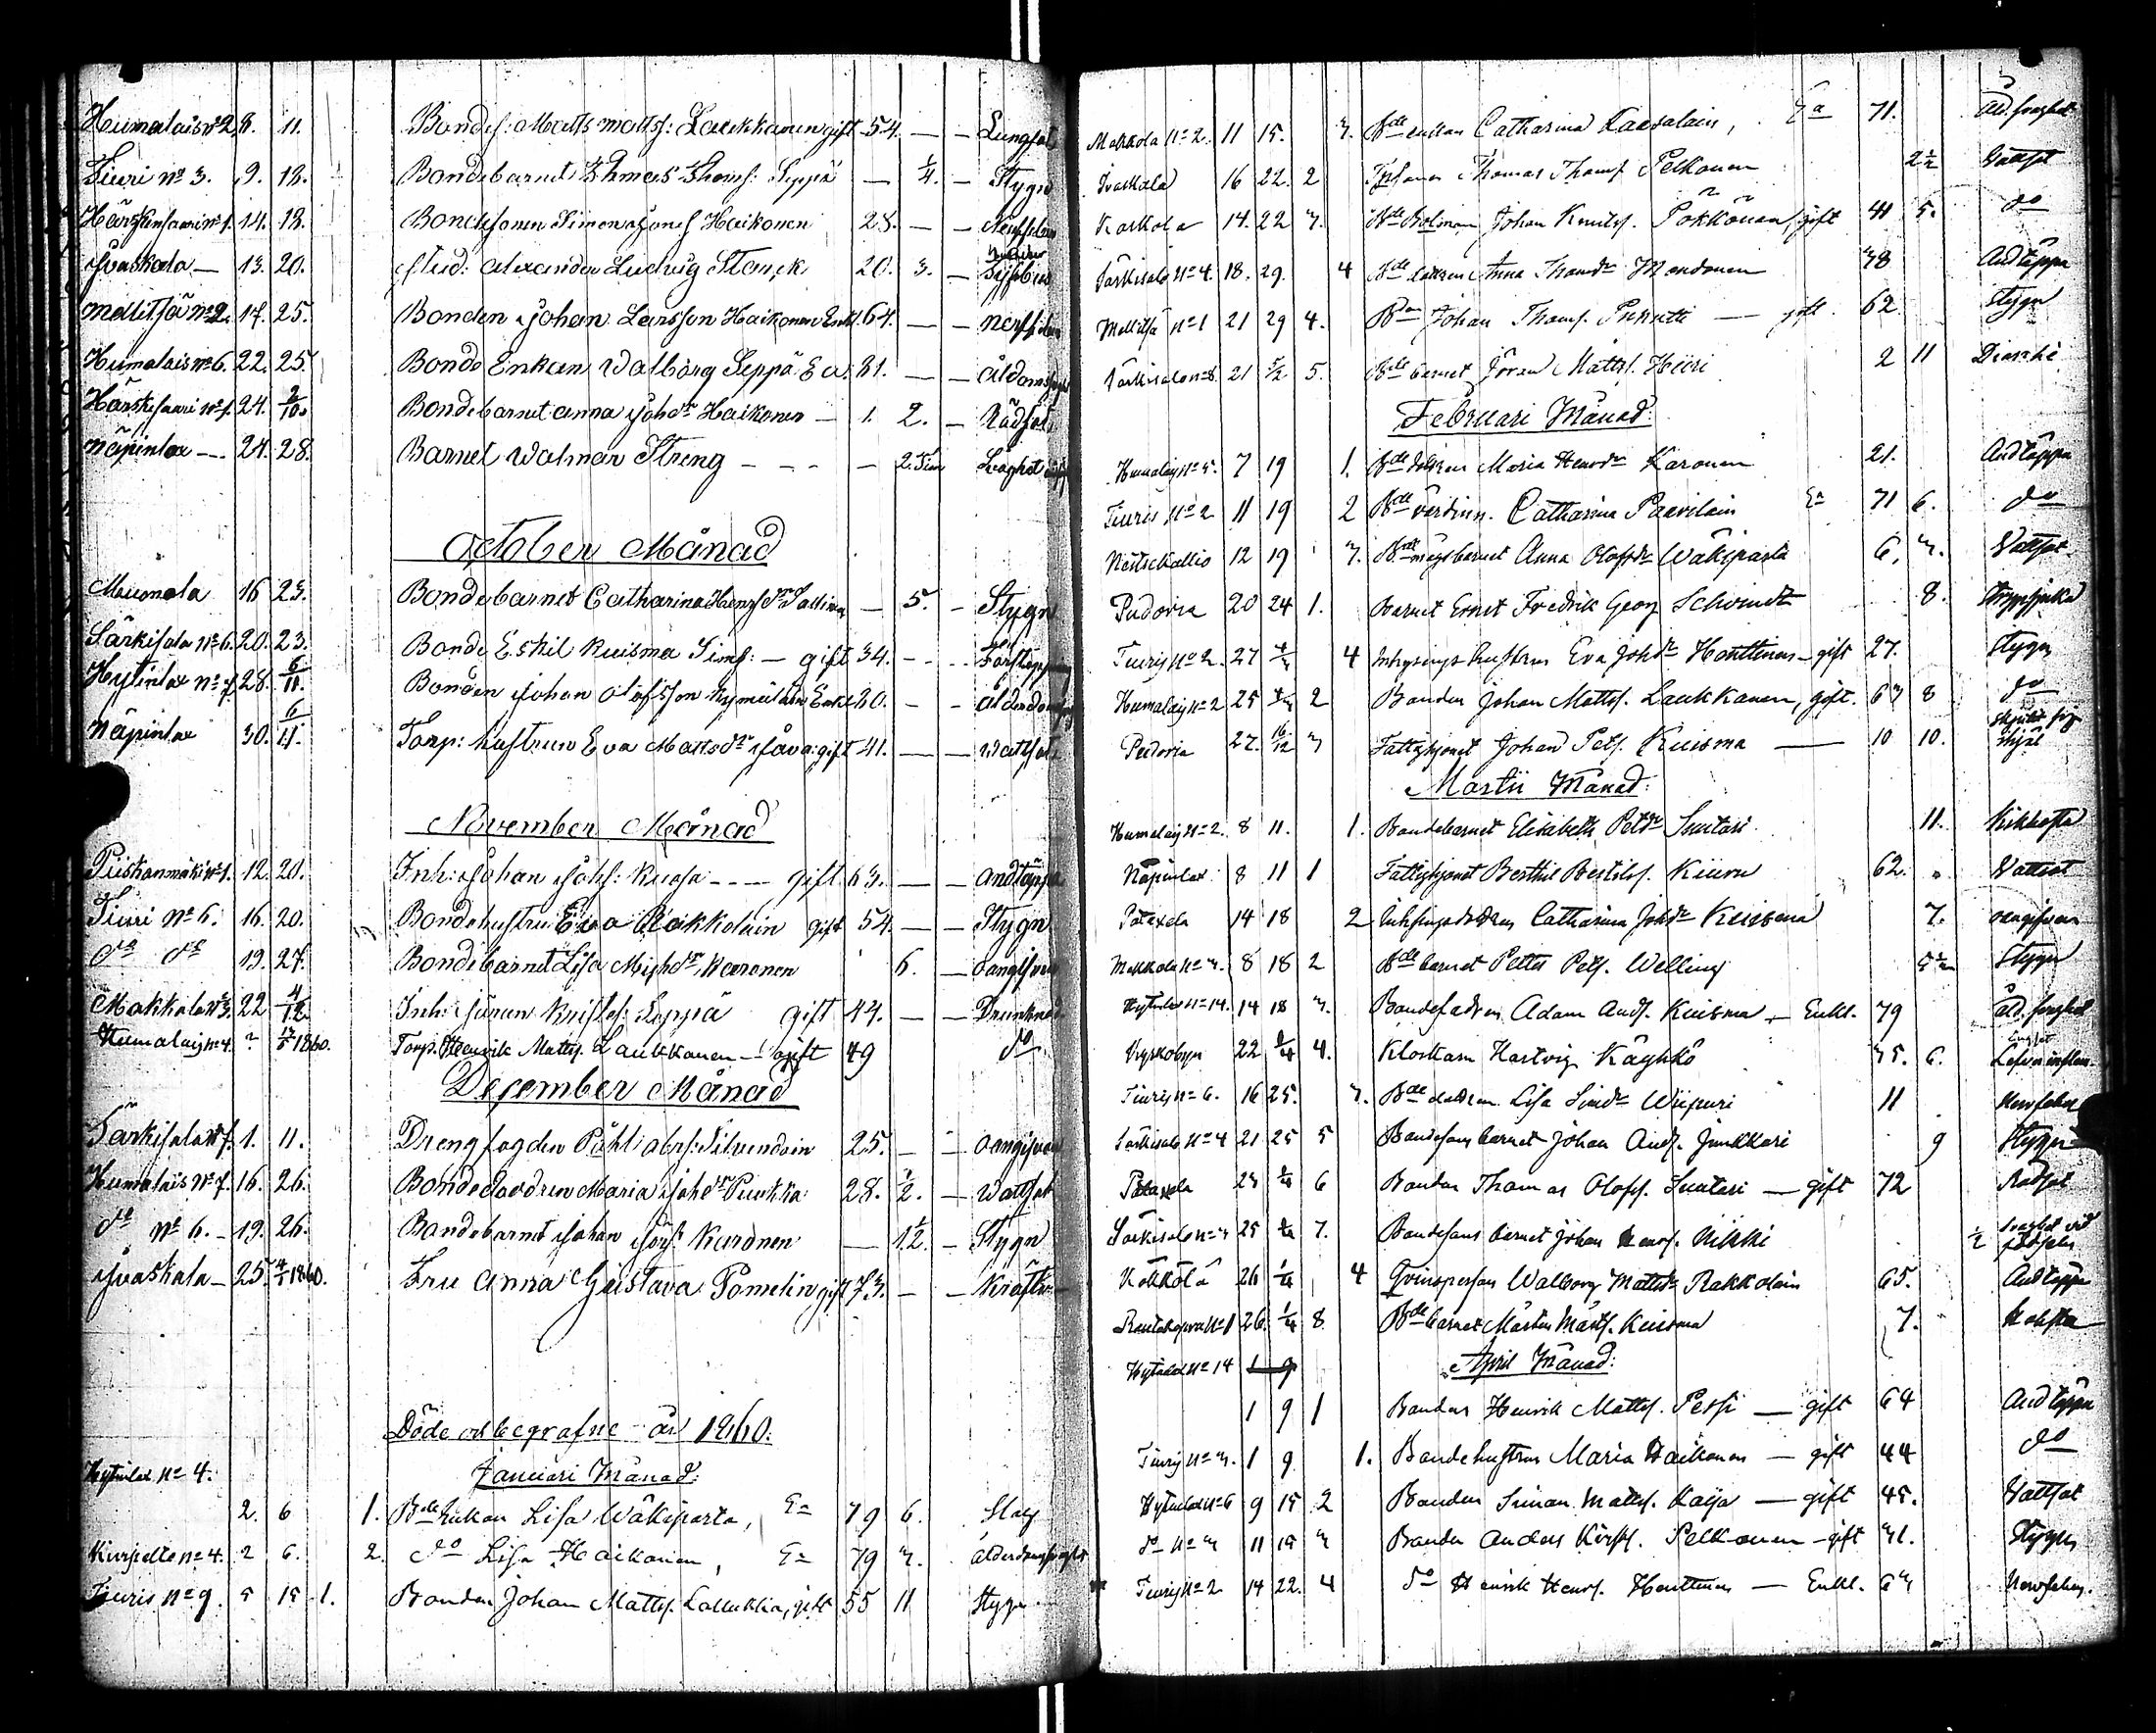 Humalais N° 2. 8. 11. Bondes: Matts Mattss: Laukkanen gift 54. — — Lungsot
Tiuri N° 3. 9. 18. Bondebarnet Thomas Thoms: Seppä — 1/4. — Stygn
Härskensaari N° 1. 14. 18. Bondesonen Simon Jönsf Haikonen 28. — — Nerffeber
Ivaskala — 13. 20. Stud: Alexander Ludvig Starck 20. 3. —
Mellitsä N° 2. 17. 25. Bonden Johan Larsson Haikonen Enkl. 64. — — Nerffeber
Humalais N° 6. 22. 25. Bonde Enkan Walborg Seppä Ea. 81. — — Ålderdoms
Härskesaari N° 1. 24. 2/10. Bondebarnet Anna Johdr Haikonen — 1. 2. — Rödsot
Näpinlax — 24. 28. Barnet Walmar Streng — — — — 2. Tim
October Månad
Meuonala 16 23. Bondebarnet Catharina — 5. — Stygn
Särkisalo N° 6. 20. 23. Bonde Eskil Kuisma Sims: — gift 34. — — Förstoppning
Hytinlax N° 7. 28. 6/11. Bonden Johan Olofsson 80. — —
Näpinlax 30. 6/11. Torp: hustrun Eva Mattsdr Sava: gift 41. — — Wattsot
November Månad
Piiskanmäki N° 1. 12. 20. Inh: Johan Johs: Kuosa — — — gift 63. — — Andtäppa
Tiuri N° 6. 16. 20. Bondehustru Eva Rakkolain gift 54. — — Stygn
do do 19. 27. Bondebarnet Lisa Michdr Karonen 6. — oangifven
Makkola N° 3. 22 4/12 Inh: Jöran Kristofs: Seppä gift 44. — — Drunknad
Humalais N° 4. ? 1860. Torp. Henrik Mattss. Laukkanen — gift 49 do
December Månad
Särkisalo N° 7. 1. 11. Drengfogden Påhl Abrs: Silvendoin 25. — — oangifven
Humalais N° 7. 16. 26. Bondedaodren Maria Johdr Puukka 28. 1/2. — Wattsot
do N° 6. — 19. 26. Bondebarnet Johan Karonen — 1/2. — Stygn
Ivaskala — 25. 1860. Fru Anna Gustava Pomelin gift 73. — — Kräfta
Döde och begrafne år 1860.
Januari Månad:
Hytinlax N° 4.
2. 6 1. Bde Enkan Lisa Wäkiparta, Ea 79 6. Slag
Kurpelto N° 4. 2 6. 2. do Lisa Haikonen, Ea 79 3. ålderdomssvaghet
Tiuris N° 9. 5 15 1. Bonden Johan Mattss. Lallukka, gift 55 11 Stygn
Makkola N° 2. 11 15. 3. Bde enkan Catharina Laasolain, Ea 71. Åld. svaghet
Ivaskala 16 22. 2 Thomas Thoms. Pelkonen 2 1/2 Vattsot
Kaskola 14. 22 3. Johan Knuts. Pökkönen, gift 41 5. do
Särkisalo N° 4. 18. 29. 4 Bde dottren Anna Thomdr Mondonen 38 Andtäppa
Mellitsä N° 1 21 29 4. Bden Johan Thoms. Purutti — gift. 62. Stygn
Särkisalo N° 8. 21 5/2 5. Bde barnet Jöran Mattss. Hiiri 2 11 Diarrhé
Februari Månad:
Humalais N° 5. 7 19 1. Bde dottren Maria Henrdr Karonen 21. Andtäppa
Tiuris N° 2 11 19 2 Bde värdinn. Catharina Paavilain Ea 71 6. do
Nestsekallio 12 19 3. Bde mågs barnet Anna Olofsdr Wäkiparta 6. 3. Vattsot
Pudoria 20 24 1. Barnet Ernst Fredrik Georg Schvindt 8. Strypsjuka
Tiuris N° 2. 27 4/3 4 Inhysings hustrun Eva Johdr Honttinen — gift 27. Stygn
Humalais N° 2 25 4/3 2 Bonden Johan Mattss. Laukkanen, gift. 63 8 do
Pudoria 27. 3 Fattighjonet Johan Pets. Kuisma — 10 10. ihjäl
Martii Månad:
Humalais N° 2. 8 11. 1. Bondebarnet Elisabeth Petdr Suutari 11. Kikhosta
Näpinlax 8 11 1 Fattighjonet Berthil Bertils. Kiuru 62. Vattsot
Pataxela 14 18 2 Inhysings dottren Catharina Johdr Kuisma 7. oangifven
Makkola N° 3. 8 18 2 Bde barnet Petter Pets. Welling Stygn
Hytinlax N° 14. 14 18 3. Bondefadren Adam Ands. Kuisma — Enkl. 79 Åld. svaghet
Kyrkobyn 22 4. Klockarn Hartvig Käyhkö 35. 6.
Tiuris N° 6. 16 25. 3. Bde dottren Lisa Simdr Wiipuri 11 Nervfeber
Särkisalo N° 4 21 25 5 Bondesons barnet Johan Ands. Junkkari 9 Stygn
Pataxela 23 6 Bonden Thomas Olofs. Suutari — gift 72 Rödsot
Särkisalo N° 3 25 7. Bondesons barnet Johan Henrs. Kikki 1/2 svaghet vid födseln
Kokkola 26 1/4 4 Qvinsperson Walborg Mattsdr Rakkolain 65. Andtäppa
Rautakorva N° 1 26. 1/4 8 Bde barnet Mårten Mårts. Kuisma 7. Hosta
April Månad:
Hytinlax N° 14 1 9
1 9 1 Bonden Henrik Mattss. Pessi — gift 64 Andtäppa
Tiuris N° 3. 1 9. 1. Bondehustrun Maria Haikonen — gift 44 do
Hytinlax N° 6 9 15 2 Bonden Simon Mattss. Kaija — gift 45. Vattsot
do N° 3 11 15 3 Bonden Anders Kirss. Pelkonen — gift 31. Stygn
Tiuris N° 2 14 22. 4 do Henrik Henrs. Honttinen — Enkl. 63 Nervfeber